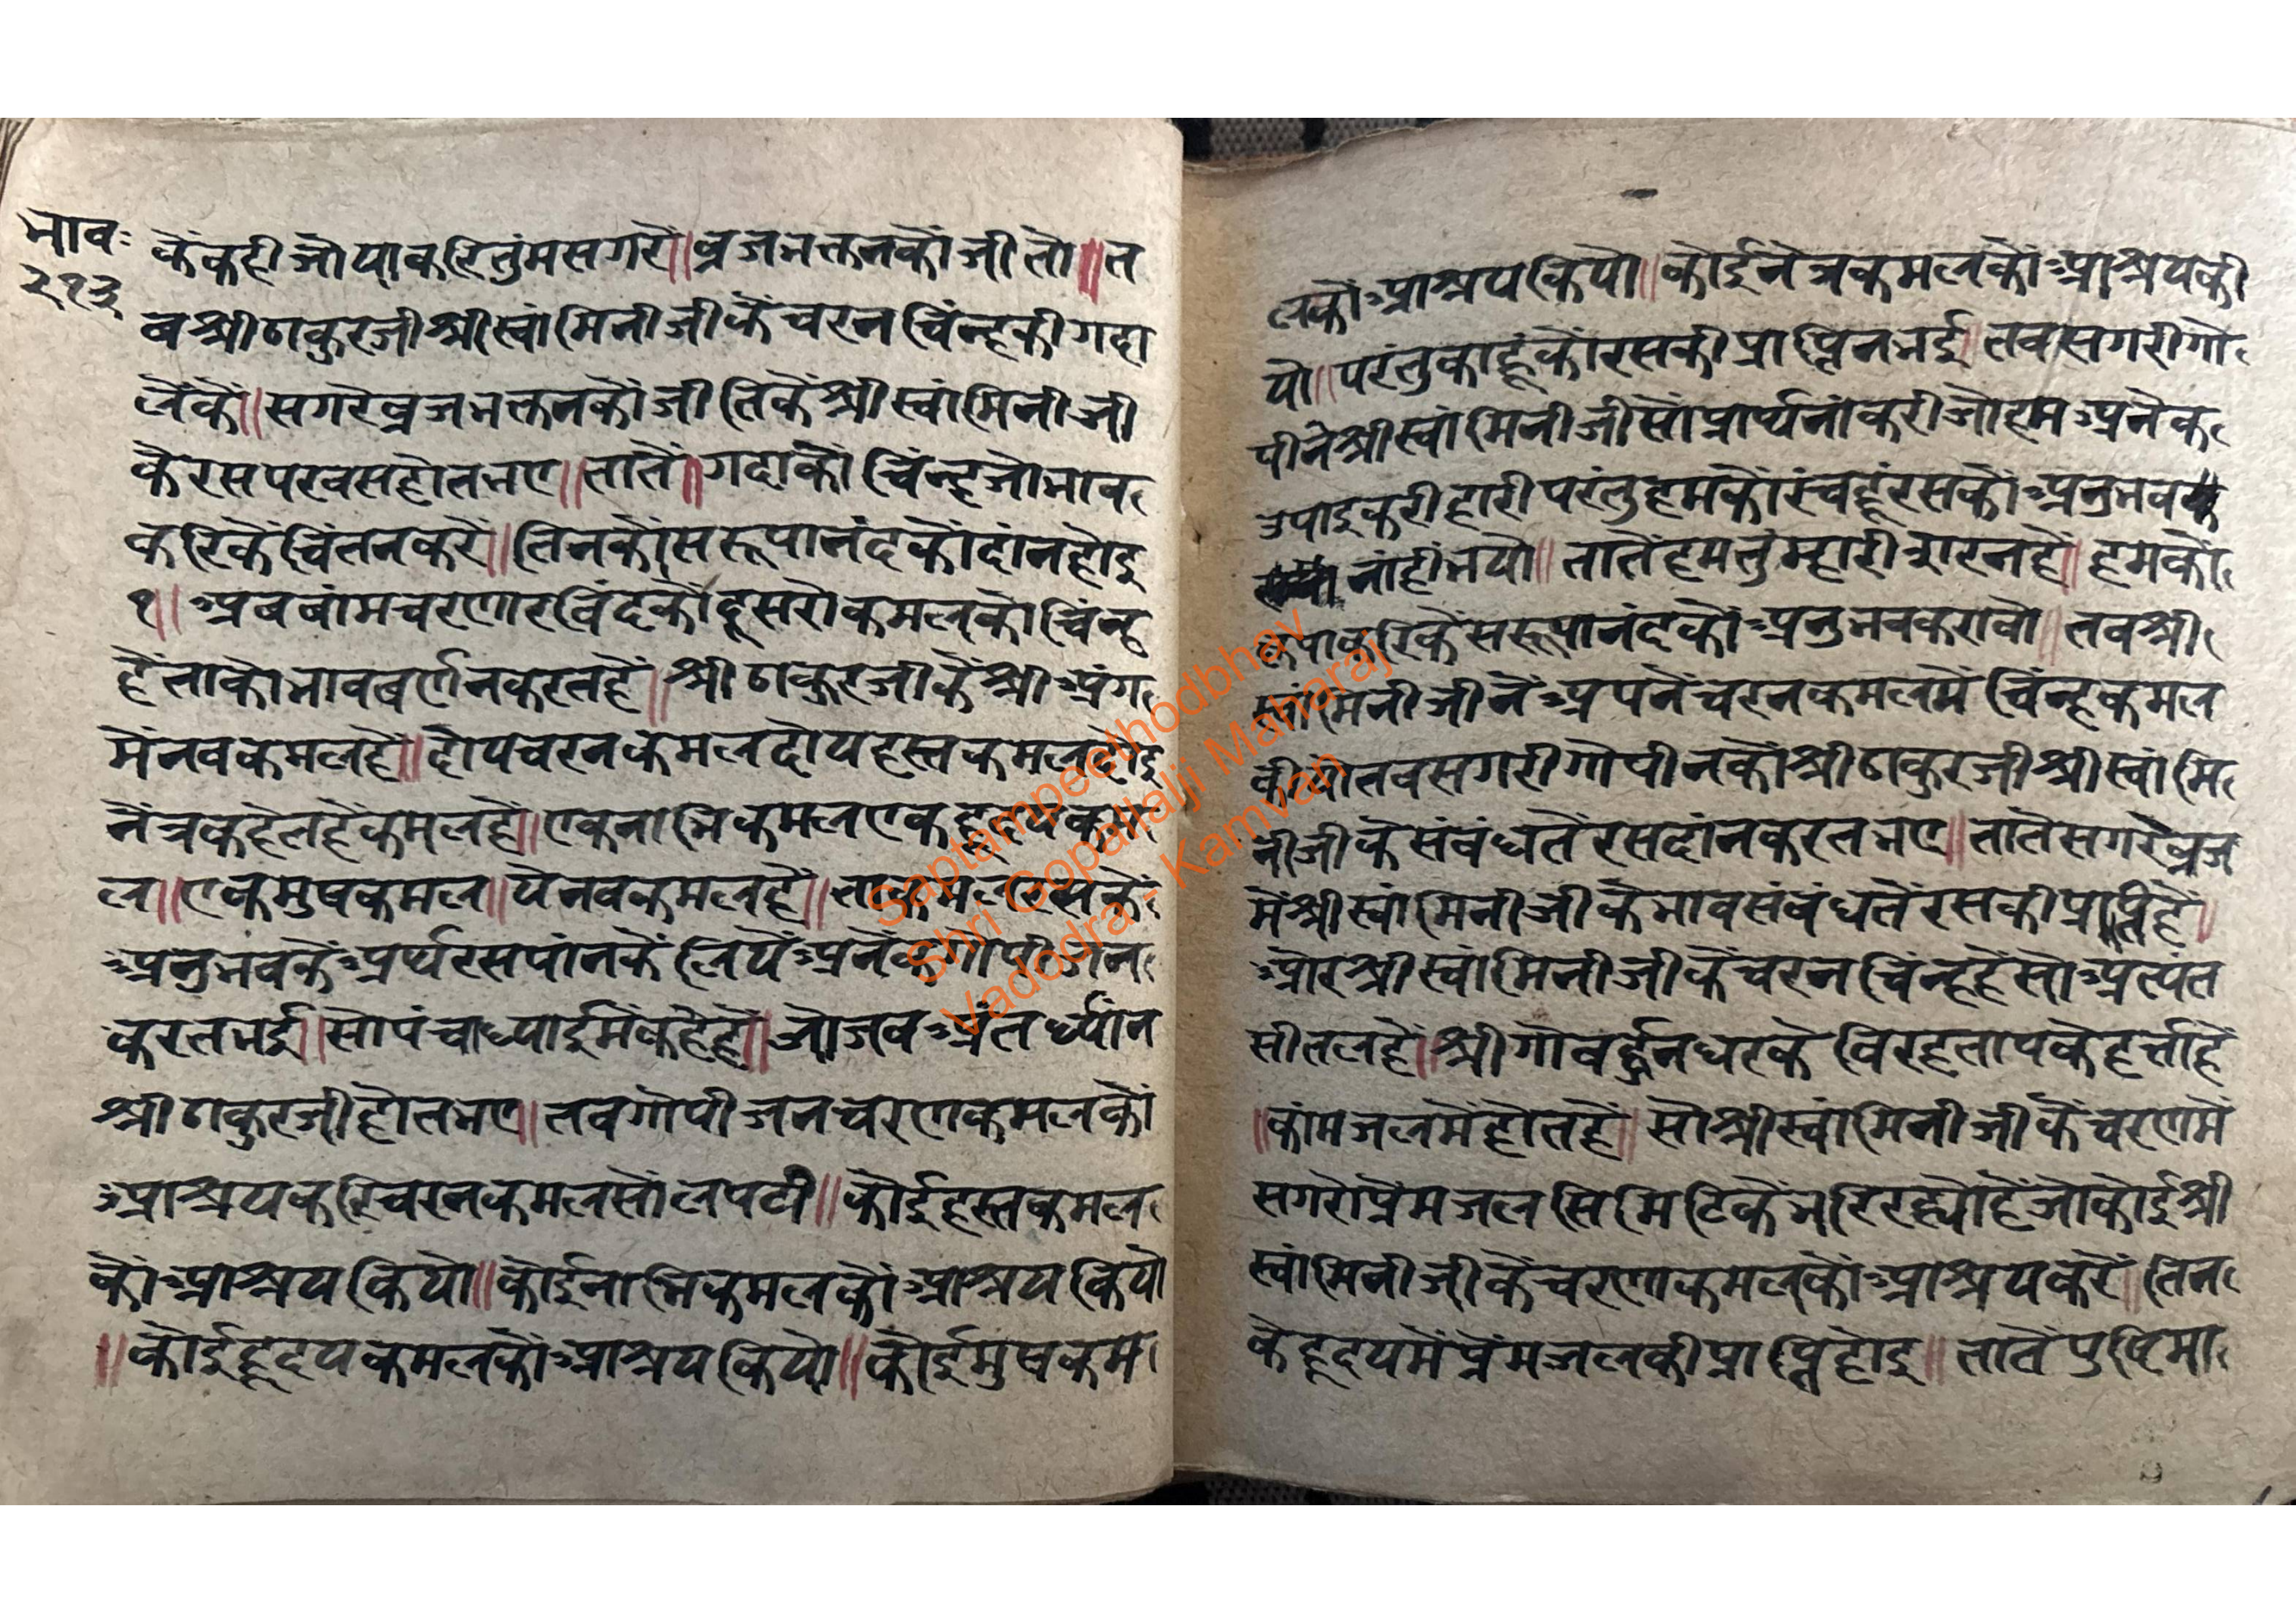 भाव:
२१३
कैंकही जोयाकरितुंमसगरे॥ब्रजभक्तनकौंजीतो॥त
बश्रीठाकुरजीश्रीस्वांमिनीजीकेंचरनचिंन्हकीगदा
लेंकें॥सगरेब्रजभक्तनकौंजीतिकेंश्रीस्वांमिनीजी
कैरसपरवसहोतभए॥तातें॥गदाकौ चिंन्हजोभाव
करिकैंचिंतनकरें॥तिनकौंसरूपानंदकौदांनहोइ
१॥अबबांमचरणारविंदकौंदूसरोकमलकोचिंन्ह
हैंताकोभावबर्णनकरतहैं॥श्रीठाकुरजीकेंश्रीअंग
मैंनवकमलहै॥दोयचरनकमलदोयहस्तकमलदोइ
नेंत्रकहेलहैंकमलहै॥एकनाभिकमलएकहृदयकम
ल॥एकमुषकमल॥येनवकमलहैं॥ताकमलरसकें
अनुभवकेंअर्थरसपांनकें लियेंअनेकगोपीजन
करतभई॥सोपंचाध्याईमेंकहेहैं॥जोजबअंतर्ध्यांन
श्रीठाकुरजीहोतभए॥तबगोपीजनचरणकमलकों
आश्रयकरिचरनकमलसोंलपटी॥कोईहस्तकमल
कोंआश्रयकियो॥कोईनाभिकमलकोंआश्रयकियो
॥कोईहृदयकमलकोंआश्रयकियो॥कोईमुषकम
लकोंआश्रयकियो॥कोईनेत्रकमलकोंआश्रयकी
यो॥परंतुकाहूंकोंरसकीप्राप्तिनभई॥तबसगरीगो
पीनेश्रीस्वांमिनीजीसोंप्रार्थनांकरीजोहमअनेक
उपाइकरीहारीपरंतुहमकोंरंचहूंरसकोंअनुभवक
नांहींभयो॥तातेंहमतुंम्हारीशरनहै॥हमकों
कृपाकरिकेंसरूपानंदकोंअनुभवकरावो॥तबश्री
स्वांमिनीजीनेंअपनेंचरनकमलमें चिंन्हकमल
कीयोतबसगरीगोपीनकोंश्रीठाकुरजीश्रीस्वांमि
नीजीकेसंबंधतेंरसदांनकरतभए॥तातेंसगरेब्रज
मेंश्रीस्वांमिनीजीकेभावसंबंधतेंरसकीप्राप्तिहैं॥
ओरश्रीस्वांमिनीजीकेंचरनचिंन्हहैंसोअत्यंत
सीतलहै॥श्रीगोवर्द्धनधरकेविरहतापकेहर्त्ताहैं
॥कांमजलमेंहोतहै॥सोश्रीस्वांमिनीजीकेंचरणमें
सगरोप्रेमजलसिमिटिकेंभरिरह्योहैंजोकोईश्री
स्वांमिनीजीकेंचरणकमलकोंआश्रयकरें॥तिन
केहृदयमेंप्रेंमजलकीप्राप्तिहोइ॥तातेंपुष्टिमा
Saptampeethodbhav
Shri Gopallalji Maharaj
Vadodra - Kamvan